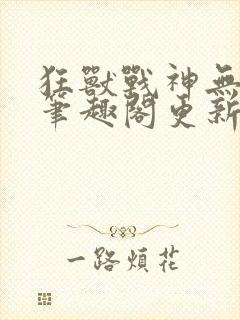 狂獸戰神無
筆趣閣更新
一路煩花